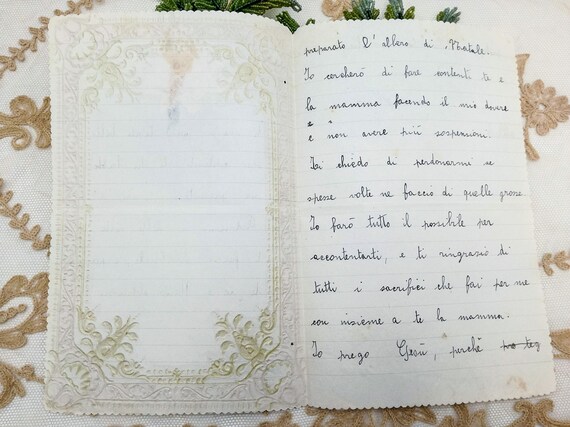 preparato l'albero di Natale.
Io cercherò di fare contenti te e
la mamma facendo il mio dovere
e
e non avere più sospensioni.
Ti chiedo di perdonarmi se
spesse volte ne faccio di quelle grosse
Io farò tutto il possibile per
accontentarti, e ti ringrazio di
tutti i sacrifici che fai per me
con insieme a te la mamma.
Io prego Gesù, perchè pro teg